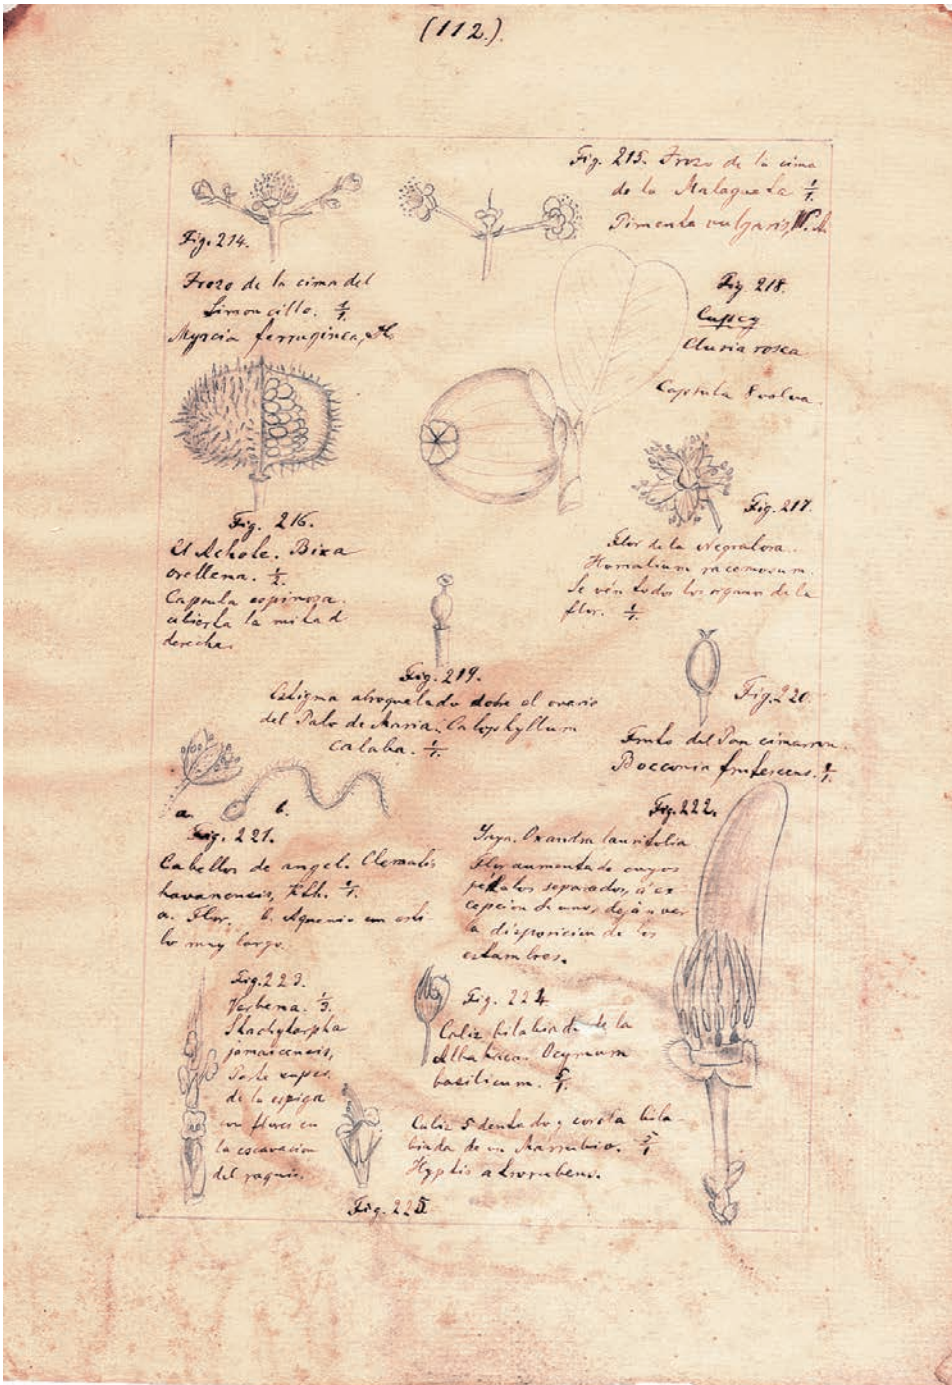 (112.)
Fig. 214.
Trozo de la cima del
Limoncillo. 1/1
Myrcia ferruginea,
Fig. 215. Trozo de la cima
de la Malagueta 1/1
Pimenta vulgaris, W. A.
Fig. 218.
Cupey
Clusia rosea
Capsula 8 valva.
Fig. 216.
El Achote. Bixa
orellena. 1/2
Capsula espinoza.
abierta la mitad
derecha.
Fig. 217.
Flor de la Negralora.
Homalium racemosum.
Se vén todos los organos de la
flor. 1/1
Fig. 219.
Estigma abroquelado sobre el ovario
del Palo de Maria. Calophyllum
calaba. 1/1
Fig. 220.
Fruto del Pan cimarron.
Bocconia frutescens. 1/1
a. b.
Fig. 221.
Cabellos de angel. Clematis
havanensis, Kth. 1/1
a. Flor, b. Aquenio con esti-
lo muy largo.
Fig. 222.
Yaya. Oxandra laurifolia
Flor aumentada cuyos
petalos separados, á ex-
cepcion de uno, deján ver
la disposicion de los
estambres.
Fig. 223.
Verbena. 1/3
Stachytarpha
jamaicensis,
Parte super.
de la espiga
con flores en
la escavacion
del raquis.
Fig. 224
Caliz bilabiado de la
Albahaca. Ocymum
basilicum. 5/1
Caliz 5 dentado y corola bila-
biada de un Marrubio. 5/1
Hyptis atrorubens.
Fig. 225